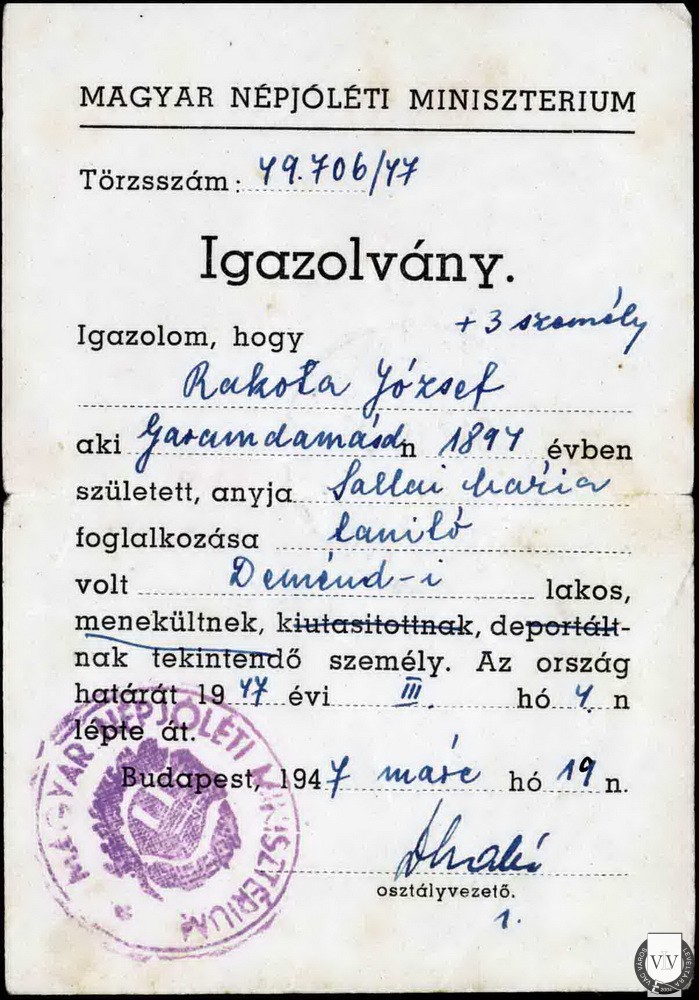 MAGYAR NÉPJÓLÉTI MINISZTERIUM
Törzsszám: 49.706/47
Igazolvány.
+ 3 személy
Igazolom, hogy
Rakota József
aki Garamdamásdn 1894 évben
született, anyja Sallai Mária
foglalkozása tanító
volt Deménd-i lakos,
menekültnek, kiutasitottnak, deportált-
nak tekintendő személy. Az ország
határát 1947 évi III. hó 4. n
lépte át.
Budapest, 1947 márc hó 19 n.
osztályvezető.
1.
MAGYAR NÉPJÓLÉTI MINISZTÉRIUM
VÁC VÁROS LEVÉLTÁRA